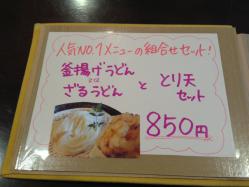 人気NO.1メニューの組合せセット!
釜揚げうどん
又は
ざるうどん
と
とり天
セット
850円